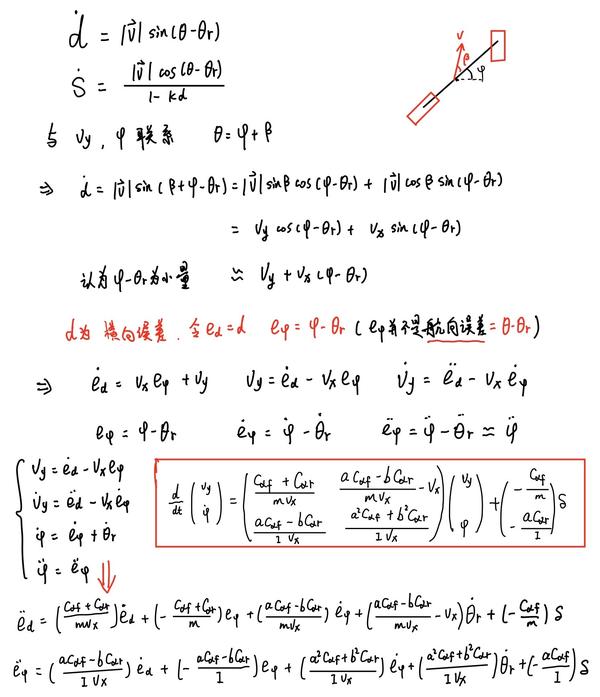 ḋ = |v⃗| sin(θ-θr)
ṡ = |v⃗| cos(θ-θr) / 1-kd
v β φ
与 Vy, φ 联系 θ=φ+β
⇒ ḋ = |v⃗| sin(β+φ-θr) = |v⃗| sinβ cos(φ-θr) + |v⃗| cosβ sin(φ-θr)
= Vy cos(φ-θr) + Vx sin(φ-θr)
认为φ-θr为小量 ≈ Vy + Vx(φ-θr)
d为 横向误差, 令ed=d eφ = φ-θr (eφ并不是航向误差=θ-θr)
⇒ ėd = Vx eφ + Vy Vy = ėd - Vx eφ V̇y = ëd - Vx ėφ
eφ = φ-θr ėφ = φ̇ - θ̇r ëφ = φ̈ - θ̈r ≈ φ̈
Vy = ėd - Vx eφ
V̇y = ëd - Vx ėφ
φ̇ = ėφ + θ̇r
φ̈ = ëφ
d/dt (Vy φ̇) = (Cαf + Cαr / mVx aCαf - bCαr / mVx - Vx aCαf - bCαr / IVx a²Cαf + b²Cαr / IVx) (Vy φ) + (- Cαf / m - aCαr / I) δ
⇓
ëd = (Cαf + Cαr / mVx) ėd + (- Cαf + Cαr / m) eφ + (aCαf - bCαr / mVx) ėφ + (aCαf - bCαr / mVx - Vx) θ̇r + (- Cαf / m) δ
ëφ = (aCαf - bCαr / IVx) ėd + (- aCαf - bCαr / I) eφ + (a²Cαf + b²Cαr / IVx) ėφ + (a²Cαf + b²Cαr / IVx) θ̇r + (- aCαf / I) δ